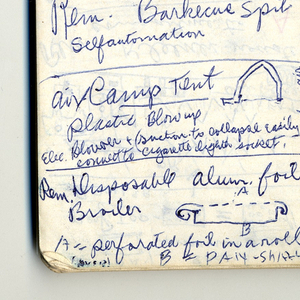 Rem. Barbecue Spit
Selfautomation
air Camp Tent
plastic Blow up
Elec. Blower & Suction to collapse easily
connect to cigarette lighter socket.
Rem Disposable alum. foil
Broiler
A
B
A = perforated foil in a roll
B = PAN-SHAP